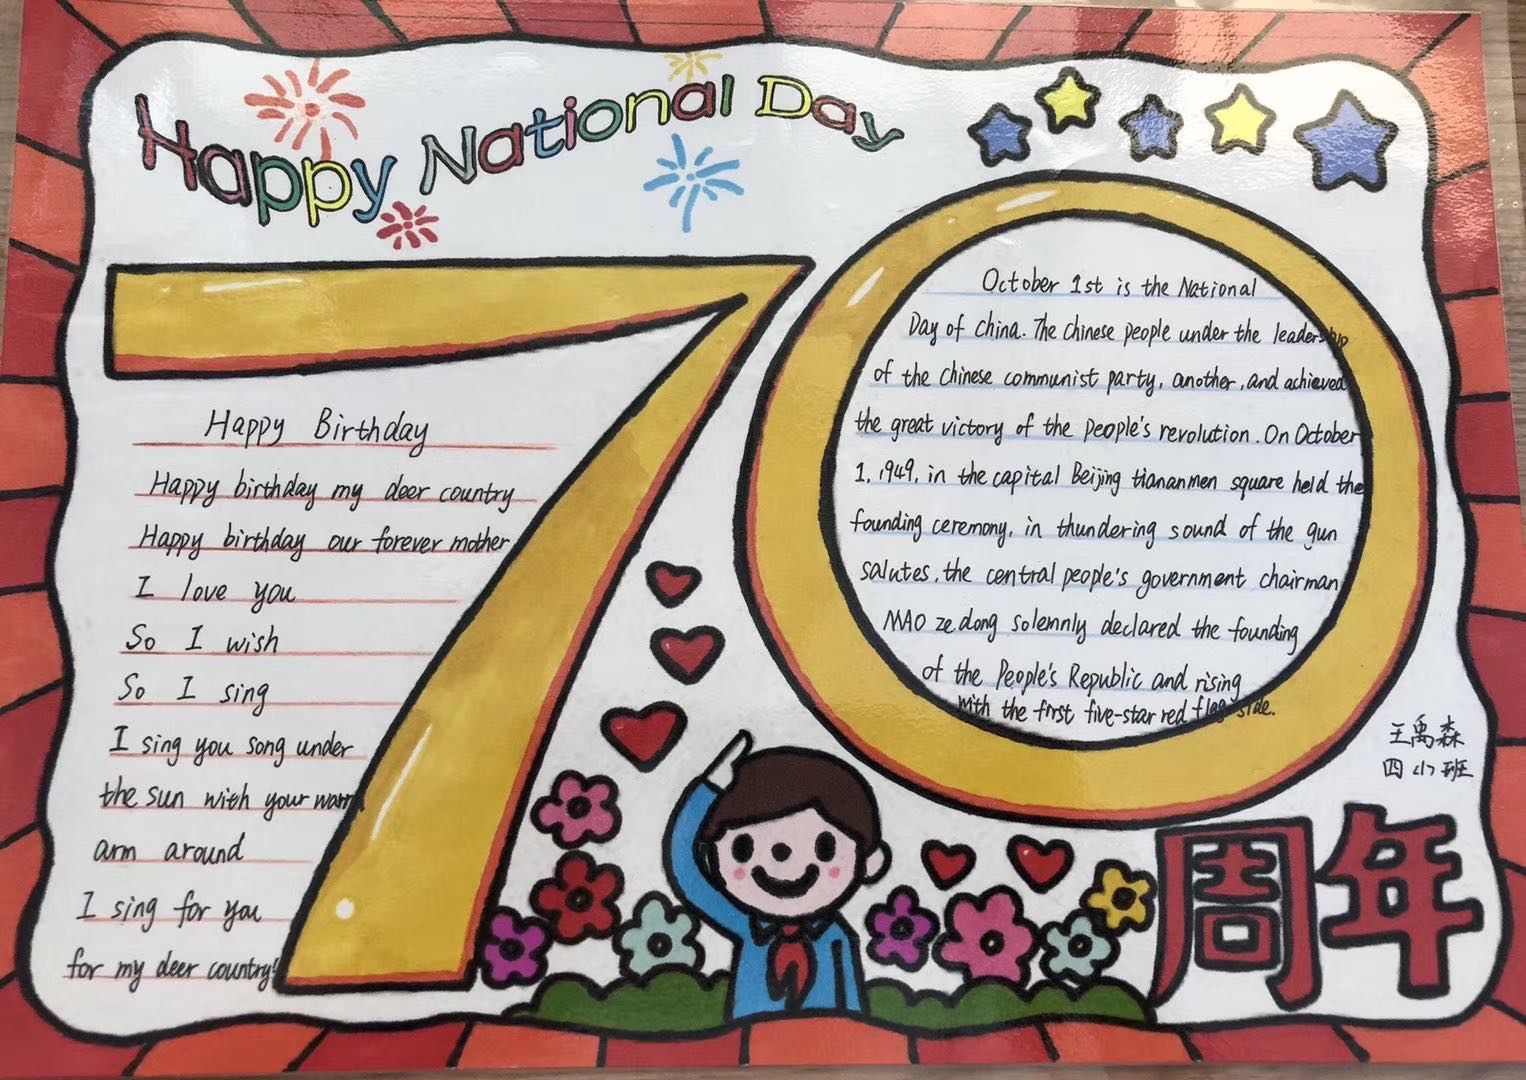 Happy National Day
70
Happy Birthday
Happy birthday my deer country
Happy birthday our forever mother
I love you
So I wish
So I sing
I sing you song under
the sun with your warm
arm around
I sing for you
for my deer country!
October 1st is the National
Day of China. The Chinese people under the leadership
of the Chinese communist party, another, and achieved
the great victory of the people's revolution. On October
1, 1949, in the capital Beijing tiananmen square held the
founding ceremony, in thundering sound of the gun
salutes, the central people's government chairman
MAO ze dong solemnly declared the founding
of the People's Republic and rising
with the first five-star red flag side.
王禹森
四小班
周年